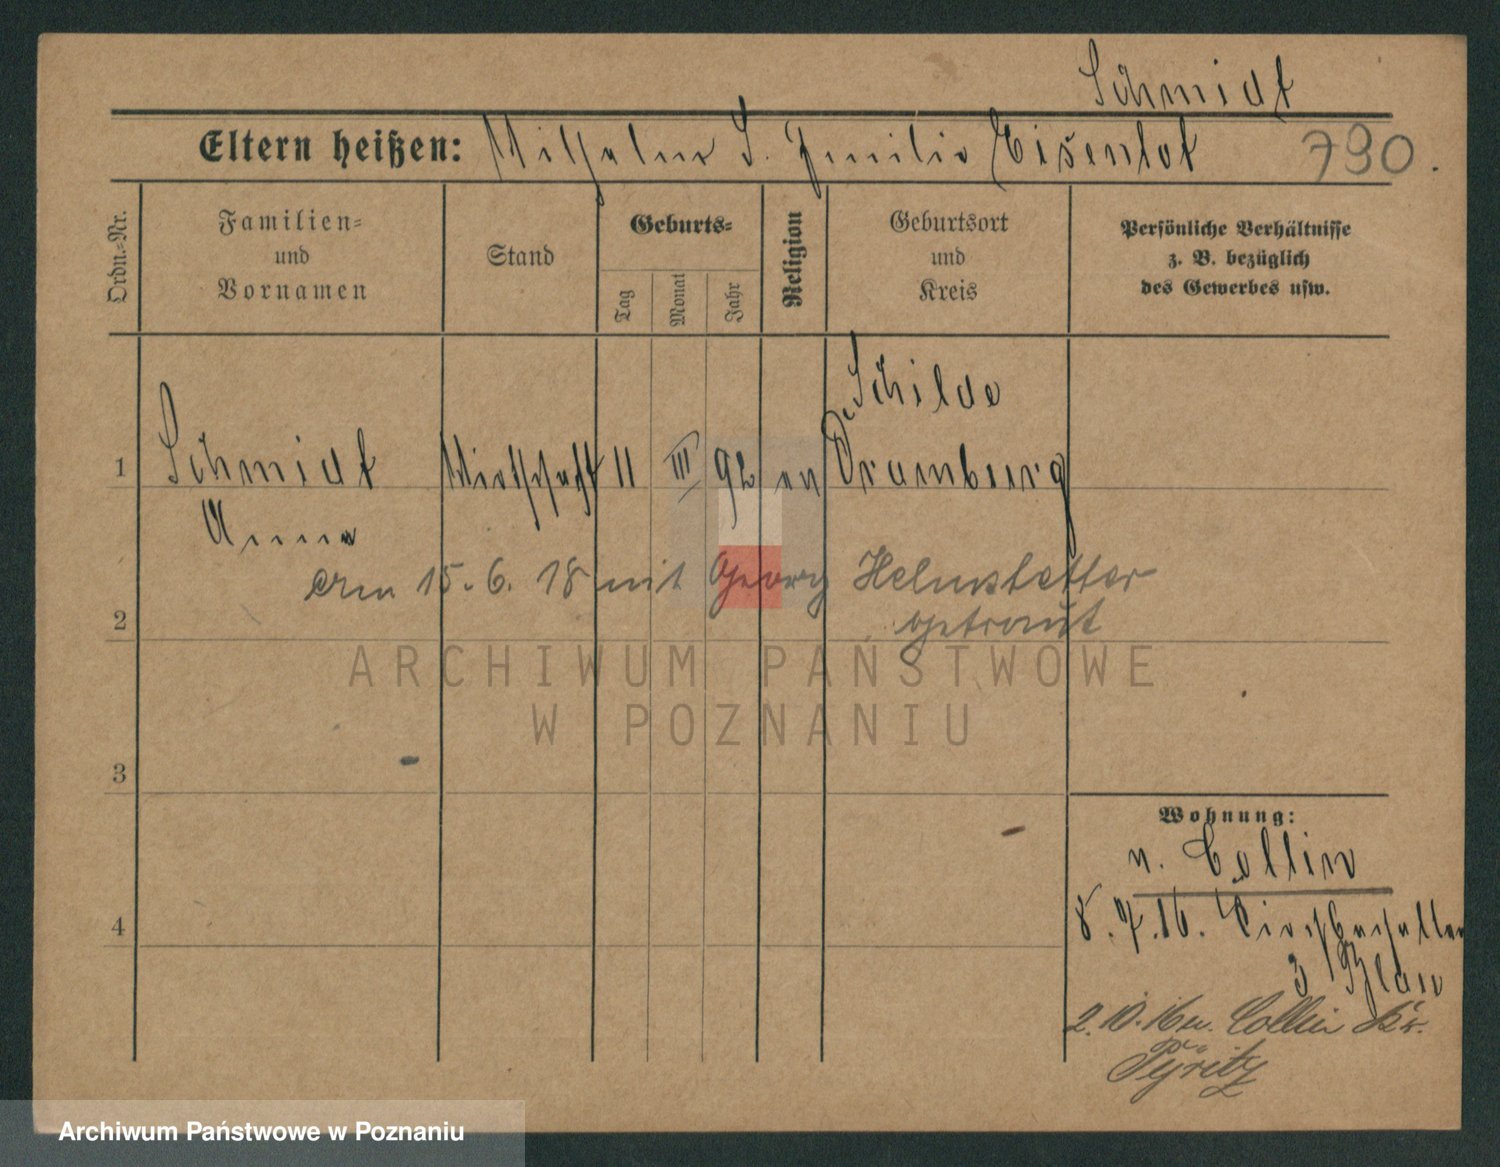 Schmidt
Eltern heißen: Wilhelm S. Emilie Eisenlot 790.
Ordn.=Nr.
Familien=
und
Vornamen
Stand
Geburts=
Tag
Monat
Jahr
Religion
Geburtsort
und
Kreis
Persönliche Verhältnisse
z. B. bezüglich
des Gewerbes usw.
Schilde
1 Schmidt Wirtschaft 11 III 92 ev Dramburg
Anna
Am 15.6.18 mit Georg Helmstetter
2 getraut
ARCHIWUM PAŃSTWOWE
W POZNANIU
3
Wohnung:
n. Collin
4 8.7.16.
3
2.10.16 n. Collin Kr.
Pyritz
Archiwum Państwowe w Poznaniu